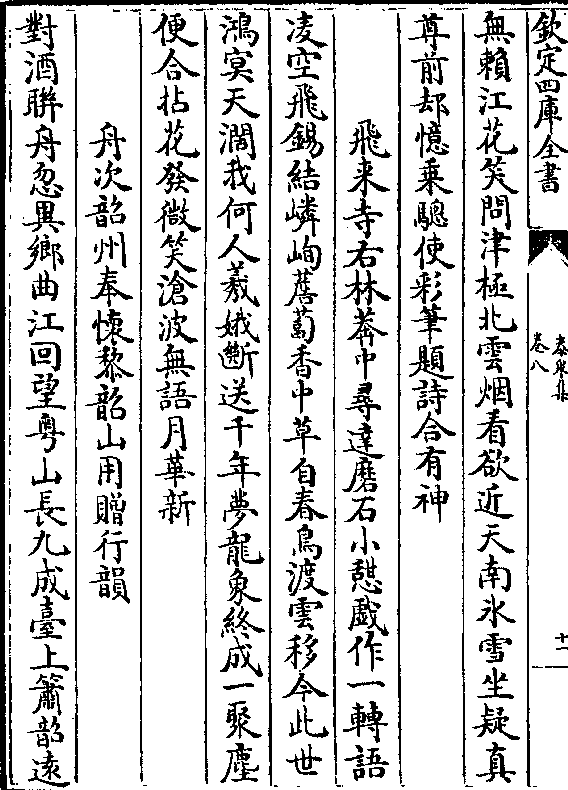 欽定四庫全書
泰泉集
卷八
十一
無賴江花笑問津極北雲烟看欲近天南氷雪坐疑真
尊前却憶乗驄使彩筆題詩合有神
飛来寺右林莽中尋達磨石小憩戲作一轉語
凌空飛錫結嶙峋薝蔔香中草自春鳥渡雲移今此世
鴻冥天濶我何人羲娥斷送千年夢龍象終成一聚塵
便合拈花發微笑滄波無語月華新
舟次韶州奉懷黎韶山用贈行韻
對酒聯舟忽異鄉曲江回望粤山長九成臺上簫韶遠